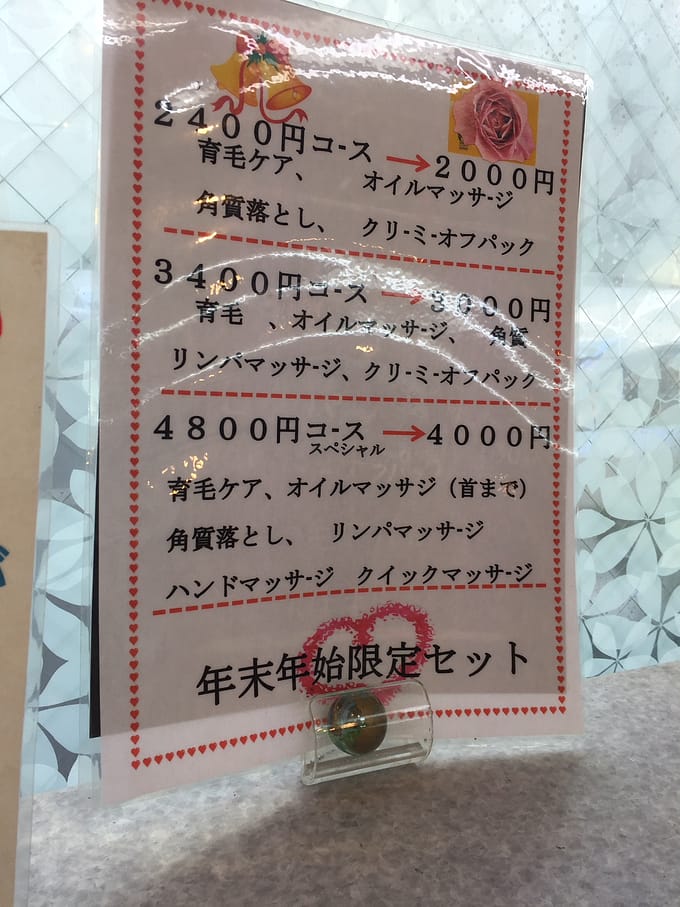 2400円コース → 2000円
育毛ケア、 オイルマッサージ
角質落とし、 クリーミーオフパック
3400円コース → 3000円
育毛 、オイルマッサージ、 角質
リンパマッサージ、クリーミーオフパック
4800円コース → 4000円
スペシャル
育毛ケア、オイルマッサジ（首まで）
角質落とし、 リンパマッサージ
ハンドマッサージ クイックマッサージ
年末年始限定セット